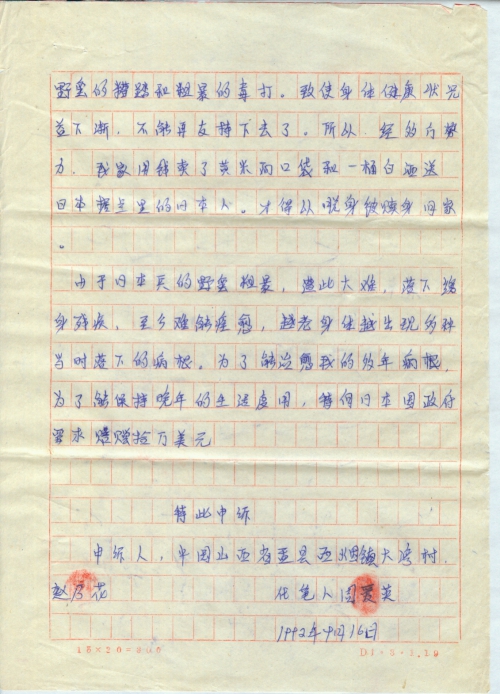 野蛮的蹧踏和粗暴的毒打。致使身体健康状况
并下渐，不能再支持下去了。所以，经多方努
力，我家用钱卖了黄米两口袋和一桶白酒送
日本据点里的日本人。才得以脱身被赎身回家
。
由于日本兵的野蛮粗暴，遭此大难，落下终
身残疾，至今难能痊愈，越老身体越出现多种
当时落下的病根。为了能治愈我的多年病根，
为了能保持晚年的生活费用，特向日本国政府
要求赔赏拾万美元
特此申诉
申诉人，中国山西省盂县西烟镇大 村.
赵 花 代笔人 英
1992年 月16日
18×20=360